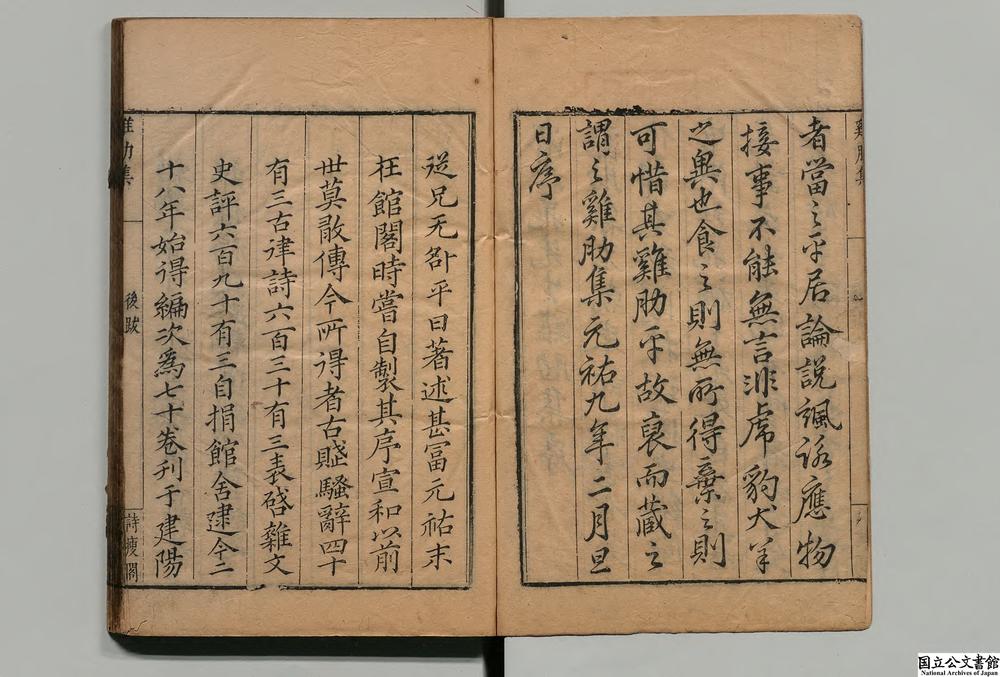 者當之乎居論説諷詠應物
接事不能無言非虎豹犬羊
之異也食之則無所得棄之則
可惜其雞肋乎故裒而藏之
謂之雞肋集元祐九年二月旦
日序
從兄无咎平日著述甚富元祐末
在館閣時嘗自製其序宣和以前
世莫敢傳今所得者古賦騷辭四十
有三古律詩六百三十有三表啓雜文
史評六百九十有三自捐館舍逮今二
十八年始得編次爲七十卷刊于建陽
後跋
詩瘦閣
国立公文書館
National Archives of Japan